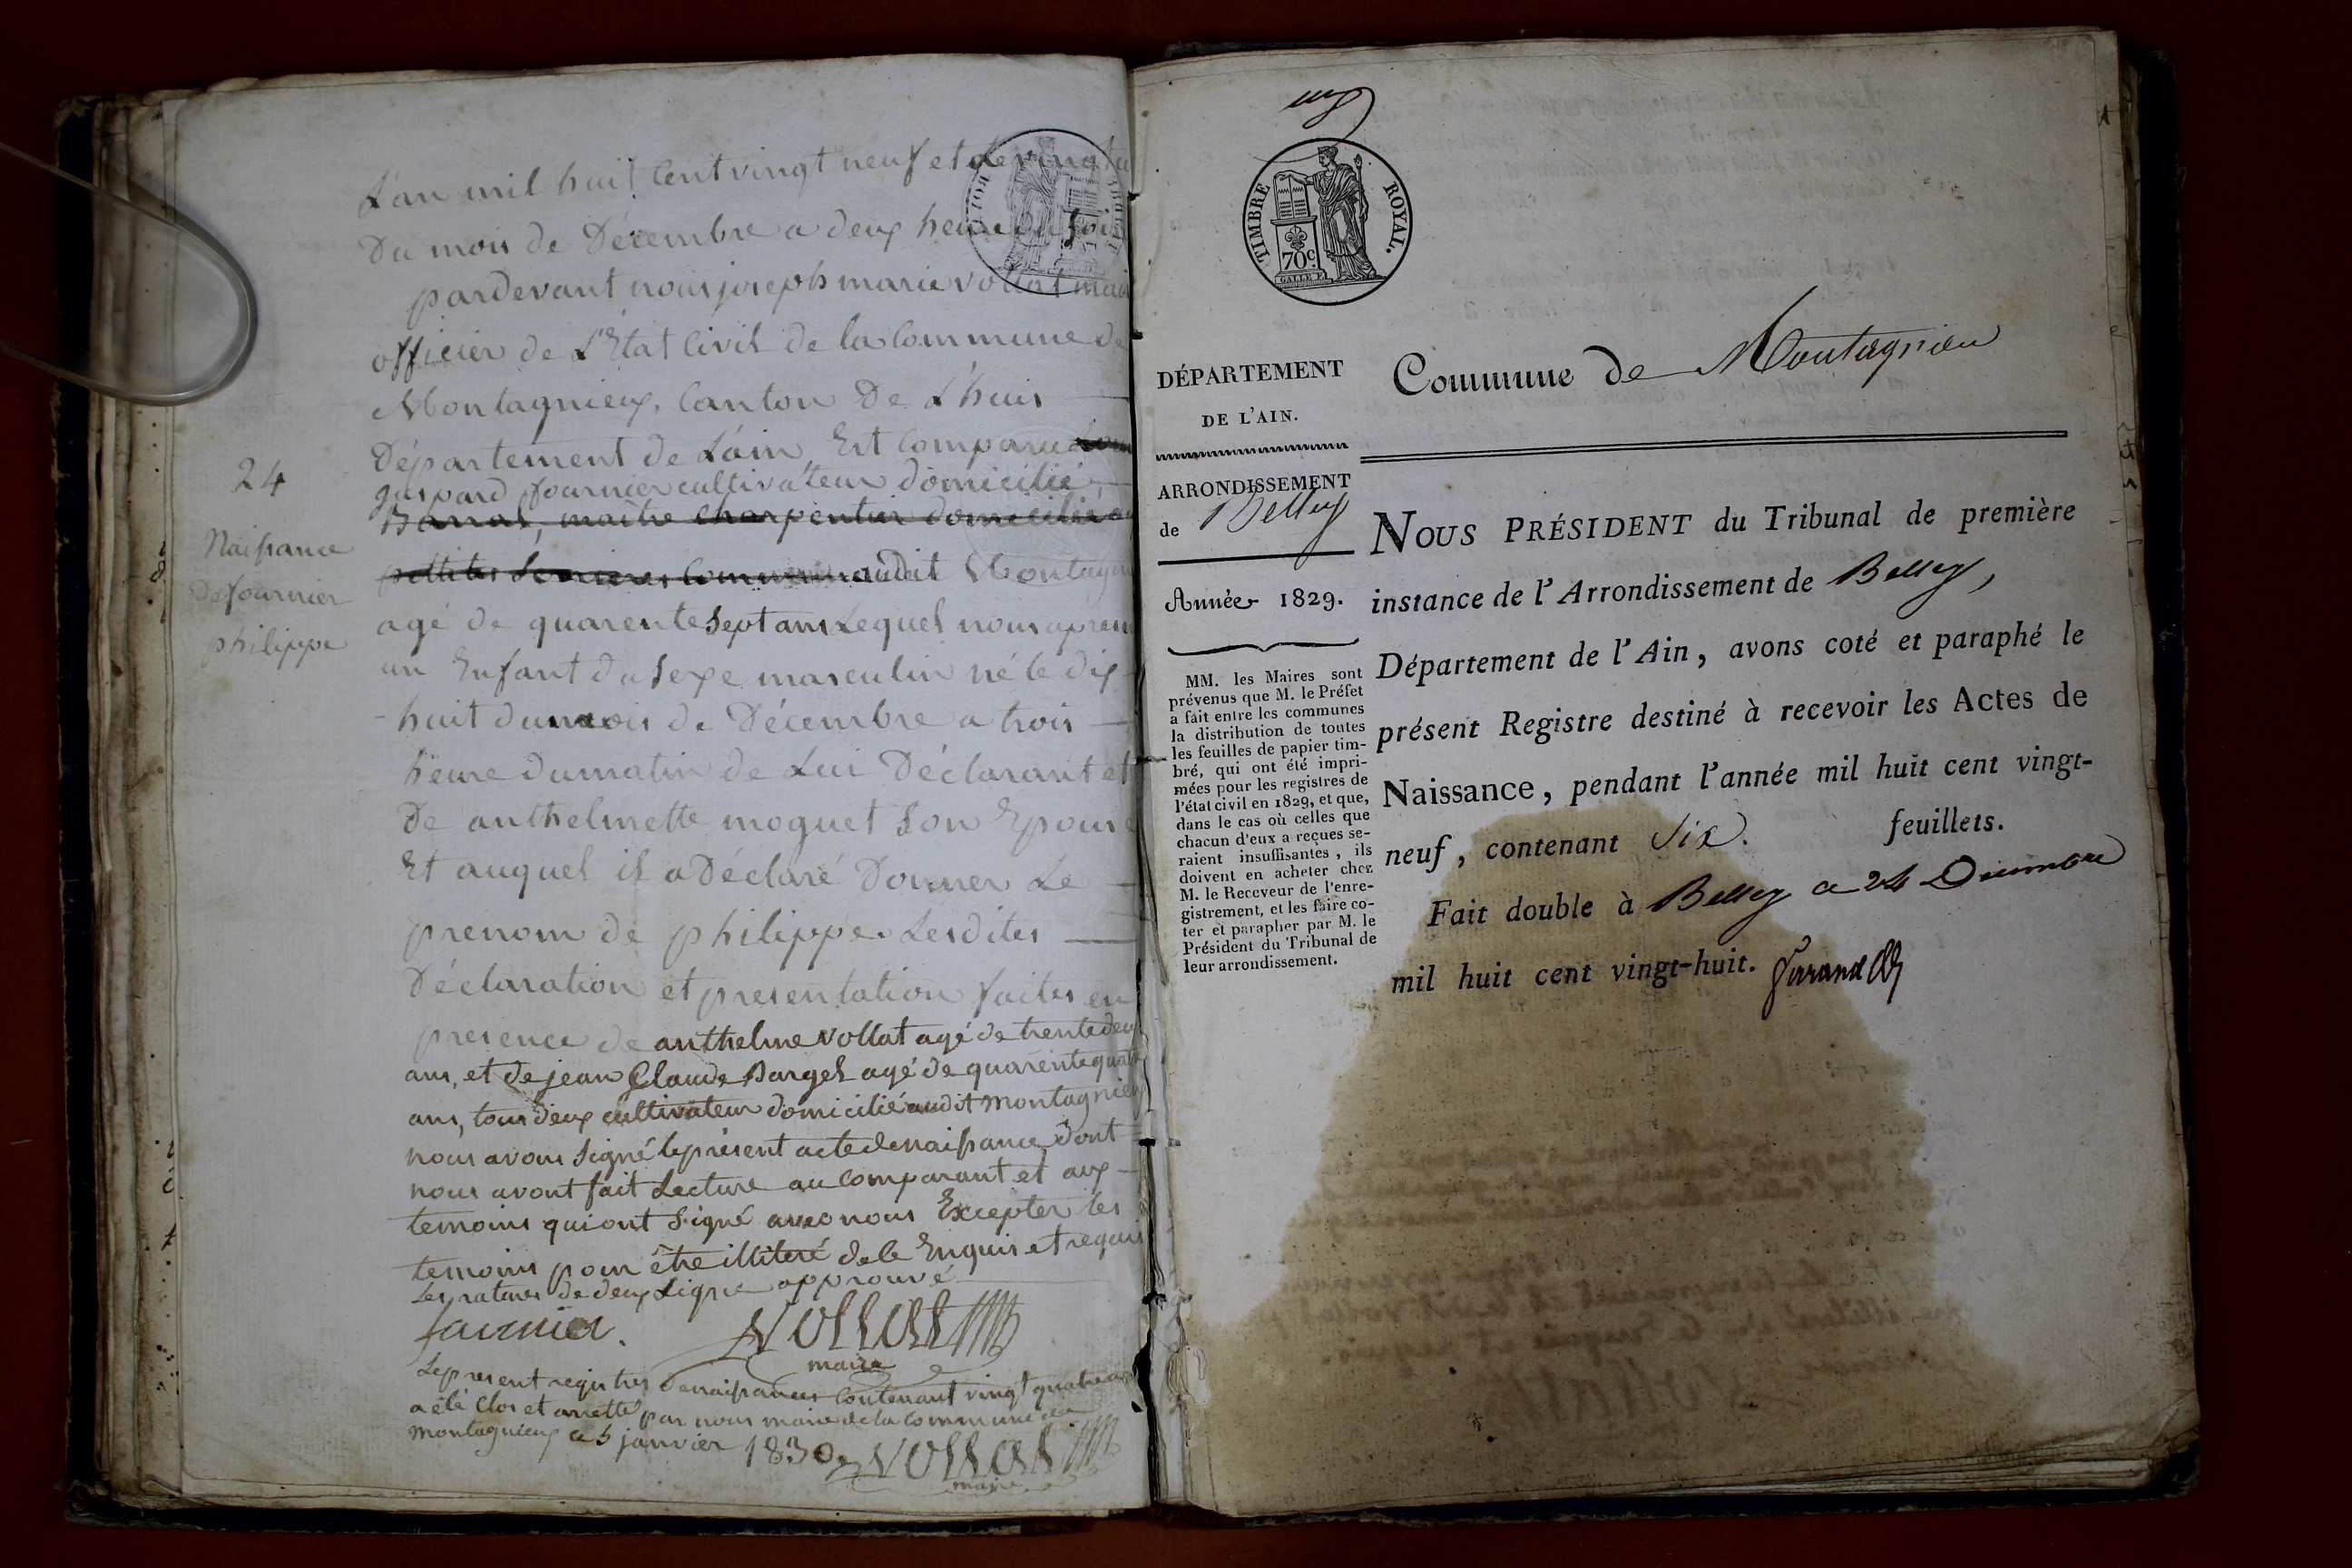 L'an mil huit Cent vingt neuf et le vingt
Du mois de Décembre a deux heure du soir
pardevant nous joseph marie vollat mair
officier de L'Etat Civil de la Commune de
Montagnieux, Canton De L'huis
Département de L'ain, Est Comparu
gaspard fournier cultivateur domicilié
Barral, maitre Charpentier domicilié au
audit Montagn
24
Naissance
de fournier
philippe
agé de quarente Sept ans Lequel nous a presen
un Enfant du Sexe masculin né le dix
-huit du mois de Décembre a trois
heure du matin de Lui Déclarant et
De anthelmette moguet Son Epouse
Et auquel il a Déclaré Donner Le
prenom de philippe. Lesdites
Déclaration et presentation faites en
presence de anthelme Vollat agé de trente deux
ans, et de jean Claude Barges agé de quarente quatre
ans, tous deux cultivateur domicilié audit montagnieu
nous avons Signé le présent acte de naissance, Dont
nous avont fait Lecture au Comparant et aux
temoins qui ont Signé avec nous Excepter les
temoins pour être illiteré de le Enquis et requis
Les ratures de deux Ligne approuvé
fournier. Vollat
maire
Le present registres de naissances Contenant vingt quatre
a été Clos et arretté par nous maire de la Commune de
montagnieux Ce 5 janvier 1830. Vollat
maire
1
TIMBRE ROYAL.
70 c.
DÉPARTEMENT
DE L'AIN.
Commune de Montagnieu
ARRONDISSEMENT
de Belley
Année 1829.
MM. les Maires sont
prévenus que M. le Préfet
a fait entre les communes
la distribution de toutes
les feuilles de papier tim-
bré, qui ont été impri-
mées pour les registres de
l'état civil en 1829, et que,
dans le cas où celles que
chacun d'eux a reçues se-
raient insuffisantes, ils
doivent en acheter chez
M. le Receveur de l'enre-
gistrement, et les faire co-
ter et parapher par M. le
Président du Tribunal de
leur arrondissement.
NOUS PRÉSIDENT du Tribunal de première
instance de l'Arrondissement de Belley,
Département de l'Ain, avons coté et paraphé le
présent Registre destiné à recevoir les Actes de
Naissance, pendant l'année mil huit cent vingt-
neuf, contenant Six. feuillets.
Fait double à Belley ce 24 Décembre
mil huit cent vingt-huit.